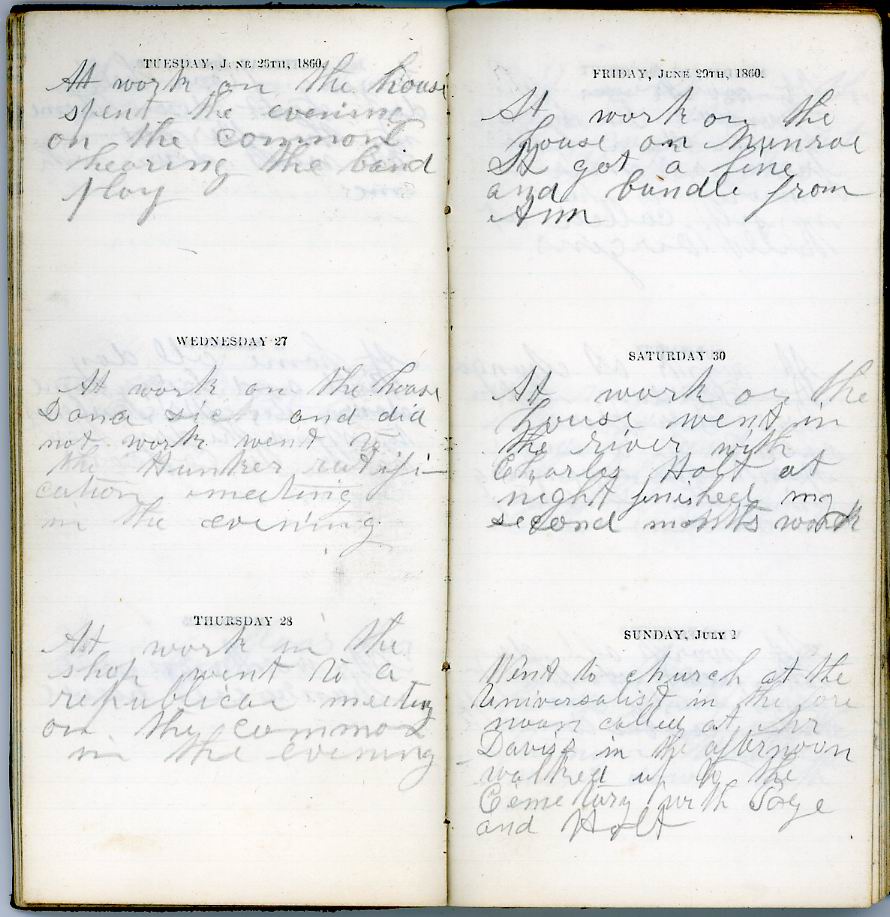 TUESDAY, JUNE 26TH, 1860.
At work on the house
spent the evening
on the common
hearing the band
play
WEDNESDAY 27
At work on the house
Dana sick and did
not work went to
the Hunker ratifi-
cation meeting
in the evening
THURSDAY 28
At work in the
shop went to a
republican meeting
on the common
in the evening
FRIDAY, JUNE 29TH, 1860.
At work on the
house on Munroe
St got a line
and bundle from
Ann
SATURDAY 30
At work on the
house went in
the river with
Charles Holt at
night finished my
second months work
SUNDAY, JULY 1
Went to church at the
Universalist in the fore
noon called at Mr
Davis's in the afternoon
walked up to the
Cemetary with Page
and Holt